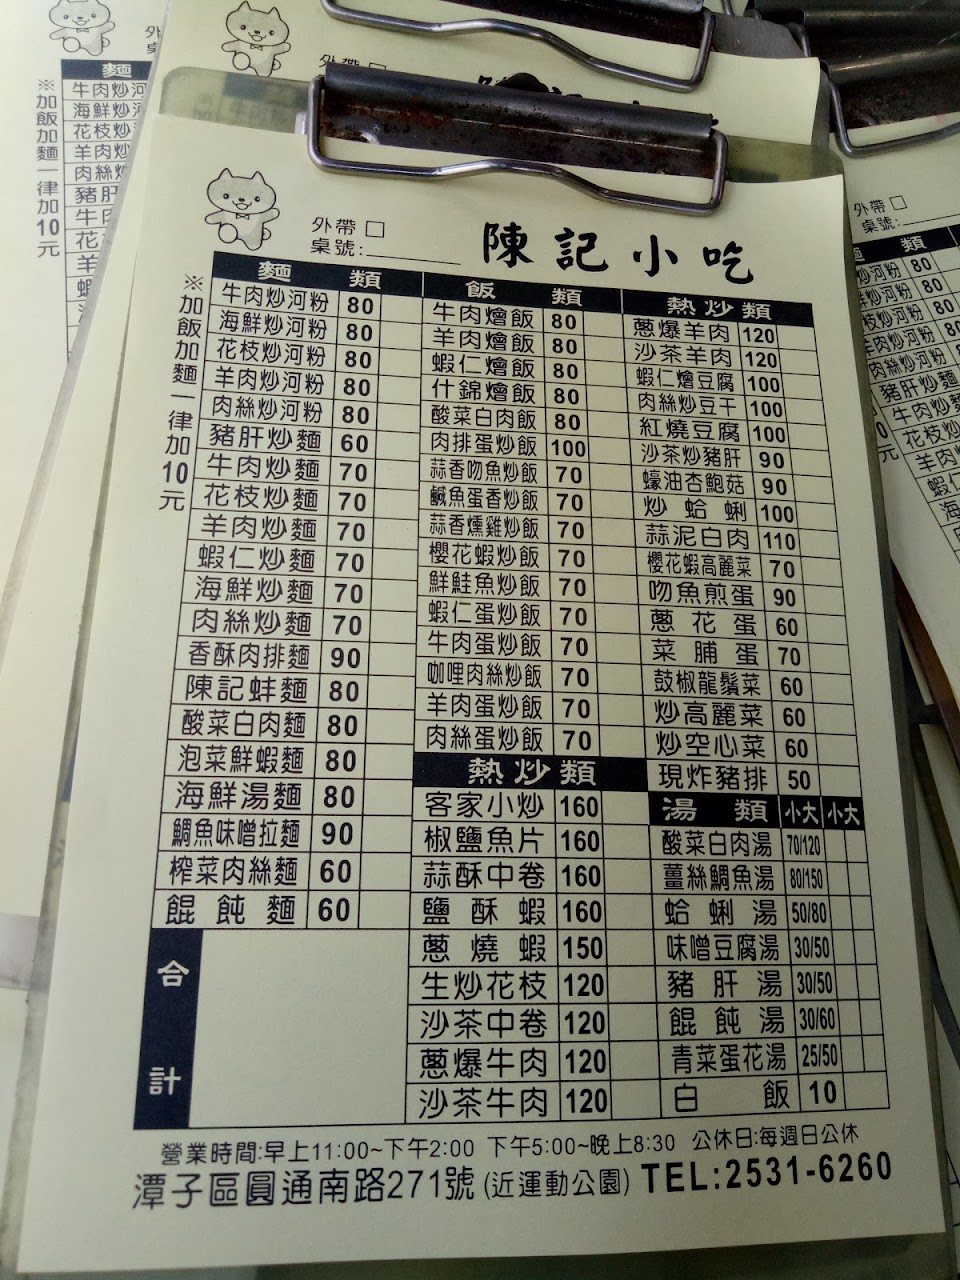 外帶 □
桌號:
陳記小吃
※加飯加麵一律加10元
麵 類
牛肉炒河粉 80
海鮮炒河粉 80
花枝炒河粉 80
羊肉炒河粉 80
肉絲炒河粉 80
豬肝炒麵 60
牛肉炒麵 70
花枝炒麵 70
羊肉炒麵 70
蝦仁炒麵 70
海鮮炒麵 70
肉絲炒麵 70
香酥肉排麵 90
陳記蚌麵 80
酸菜白肉麵 80
泡菜鮮蝦麵 80
海鮮湯麵 80
鯛魚味噌拉麵 90
榨菜肉絲麵 60
餛飩麵 60
合計
飯 類
牛肉燴飯 80
羊肉燴飯 80
蝦仁燴飯 80
什錦燴飯 80
酸菜白肉飯 80
肉排蛋炒飯 100
蒜香吻魚炒飯 70
鹹魚蛋香炒飯 70
蒜香燻雞炒飯 70
櫻花蝦炒飯 70
鮮鮭魚炒飯 70
蝦仁蛋炒飯 70
牛肉蛋炒飯 70
咖哩肉絲炒飯 70
羊肉蛋炒飯 70
肉絲蛋炒飯 70
熱炒類
客家小炒 160
椒鹽魚片 160
蒜酥中卷 160
鹽酥蝦 160
蔥燒蝦 150
生炒花枝 120
沙茶中卷 120
蔥爆牛肉 120
沙茶牛肉 120
熱炒類
蔥爆羊肉 120
沙茶羊肉 120
蝦仁燴豆腐 100
肉絲炒豆干 100
紅燒豆腐 100
沙茶炒豬肝 90
蠔油杏鮑菇 90
炒蛤蜊 100
蒜泥白肉 110
櫻花蝦高麗菜 70
吻魚煎蛋 90
蔥花蛋 60
菜脯蛋 70
鼓椒龍鬚菜 60
炒高麗菜 60
炒空心菜 60
現炸豬排 50
湯 類 小大 小大
酸菜白肉湯 70/120
薑絲鯛魚湯 80/150
蛤蜊湯 50/80
味噌豆腐湯 30/50
豬肝湯 30/50
餛飩湯 30/60
青菜蛋花湯 25/50
白飯 10
營業時間:早上11:00~下午2:00 下午5:00~晚上8:30 公休日:每週日公休
潭子區圓通南路271號 (近運動公園) TEL:2531-6260